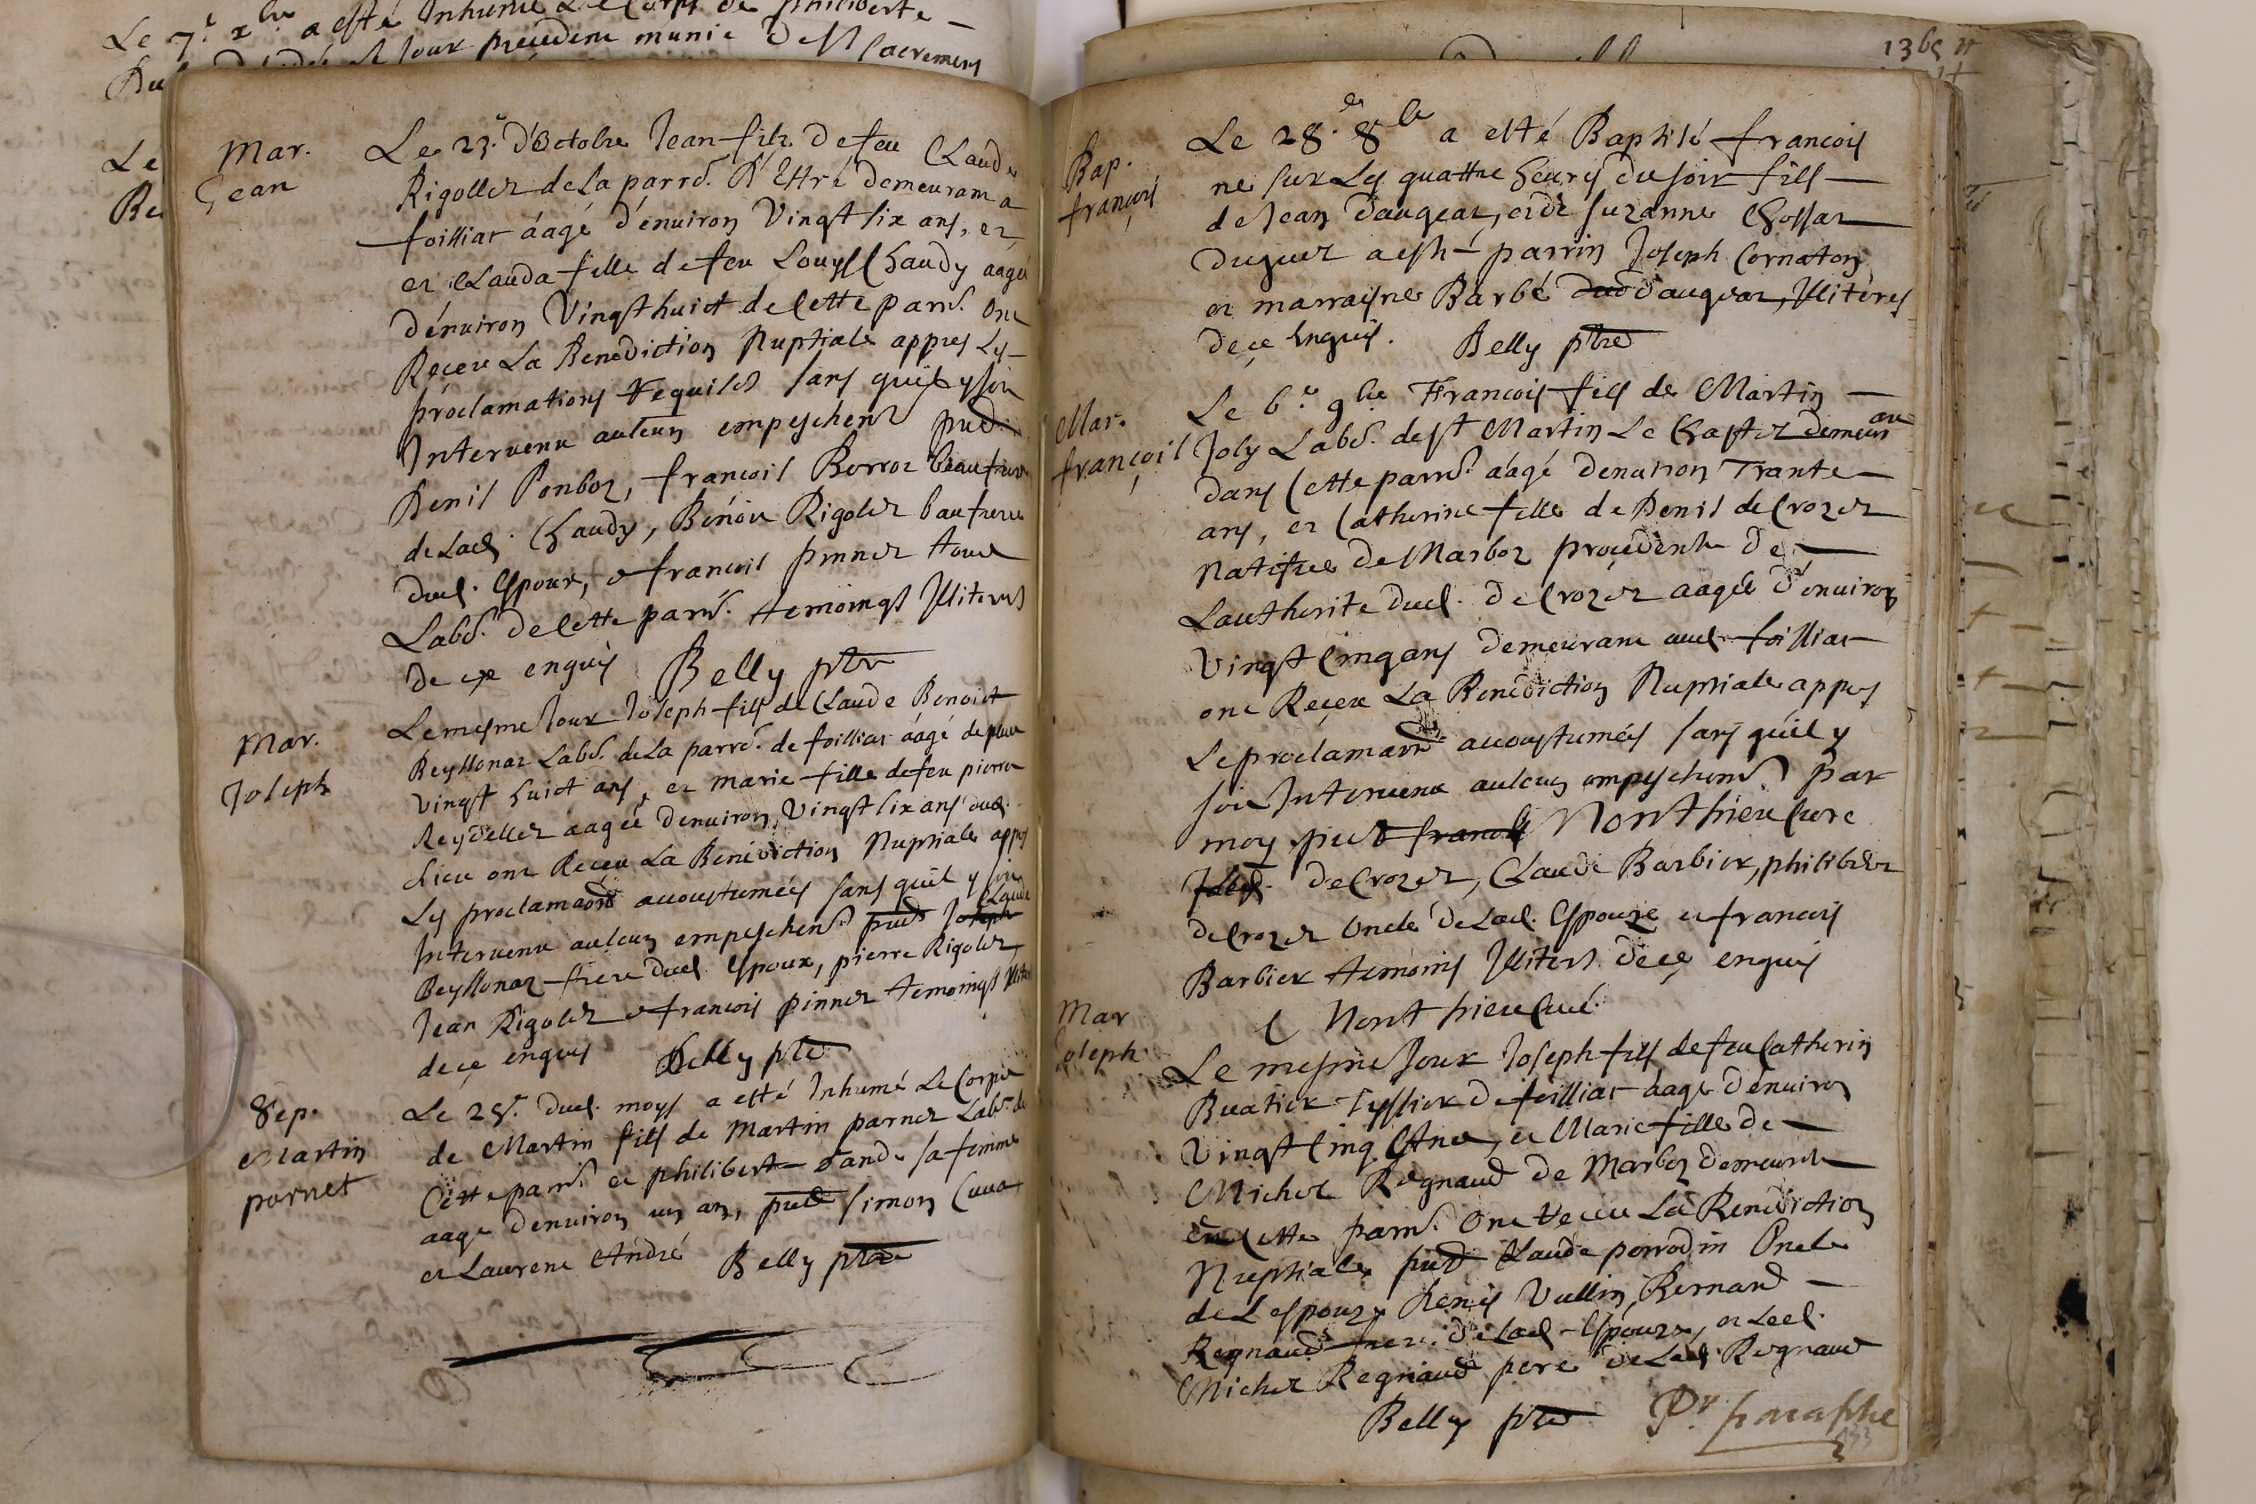 Le 7.e xbre a esté Inhumé Le Corps de philiberte
jour precedent munie des sacrements
Le
Mar.
Jean
Le 23.e d'Octobre Jean fils de feu Claude
Rigollet de La parr.e d'Ettré demeurant a
foilliat áagé d'enuiron Vingst six ans, et
et Clauda fille de feu Louys Chaudy aagée
d'enuiron Vingsthuict de Cette parr.e Ont
Reçeu La Benediction Nuptiale appres Les
proclamations requises sans quil y soit
Interuenu aulcun empeschent pnts
Denis Ponboz, francois Borroz beaufrere
de Lad. Chaudy, Benoit Rigolet baufrere
dud. Espoux, et francois pinnet tous
Labs. de Cette parr.e temoingst Illiteres
de ce enquis Belly ptre
Mar.
Joseph
Le mesme Jour Joseph fils de Claude Benoict
Beyssonat Lab.r de La parr.e de foilliat áagé de plus
vingst huict ans, et marie fille de feu pierre
Reydellet aagée denuiron Vingst six ans dud.
Lieu ont Reçeu La Benediction Nuptiale appres
Les proclamaons accoustumées sans quil y soit
Interuenu aulcun empeschent pnts Joseph Claude
Beyssonat frere dud. Espoux, pierre Rigolet,
Jean Rigolet et francois pinnet temoingst Illit
de ce enquis Belly ptre
Sep.
Martin
parnet
Le 25.e dud. moys a esté Inhumé Le Corps
de Martin fils de Martin parnet Lab.r de
Cette parr.e et philiberte sa femme
aagé denuiron un an, pnts Simon Cuuat
et Laurent André Belly ptre
1365
Bap.
françois
Le 28.e 8bre a esté Baptisé francois
né sur Les quattre heures du soir fils
de Jean Daugeat, et de Suzanne Chossat
duquel a esté parrin Joseph Cornaton
et marraine Barbé Daugeat, Illiteres
de ce Enquis. Belly ptre
Mar.
françois
Le 6.e 9bre François fils de Martin
Joly Lab.r de St Martin Le Chastel demeurant
dans Cette parr.e áagé denuiron Trante
ans, et Catherine fille de Denis de Crozet
natifue de Marboz procedente de
L'authorite dud. de Crozet aagée d'enuiron
Vingst Cinq ans demeurant aud. foilliat
ont Reçeu La Benediction Nuptiale appres
Le proclamaons accoustumées sans quil y
soit Interuenu aulcun empeschent par
moy Monthieu Curé
de Crozet, Claude Barbier, philibert
de Crozet Oncle de Lad. Espouze et francois
Barbier temoins Illiters de ce enquis
C Monthieu Curé
Mar
Joseph
Le mesme Jour Joseph fils de feu Catherin
Buatier Tyssier de foilliat áagé d'enuiron
Vingst Cinq Ans, et Marie fille de
Michel Regnaud de Marboz demeurante
en Cette parr.e Ont reçeu La Benediction
Nuptiale pnts Claude perrodin Oncle
de L'espoux, Denis Vullin, Bernard
Regnaud frere de Lad. Espouze, et Led.
Michel Regnaud pere de Lad. Regnaud
Belly ptre Pr. paraphe